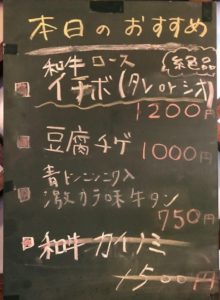 本日のおすすめ
和牛ロース 絶品
イチボ(タレorシオ)
1200円
豆腐チゲ 1000円
青トンニンニク入
激カラ味牛タン
750円
和牛カイノミ
1500円